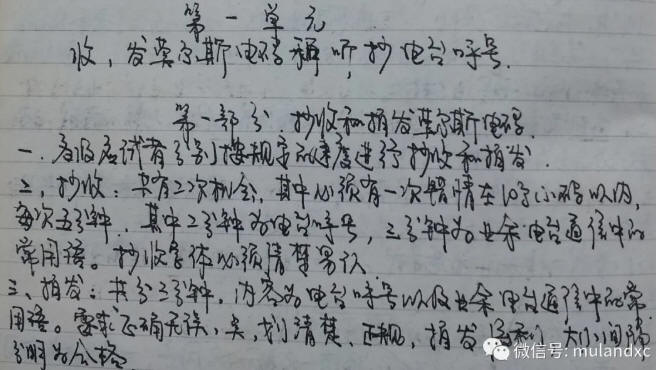 第一单元
收,发莫尔斯电码和听,抄电台呼号.
第一部分:抄收和拍发莫尔斯电码.
一.各级应试者分别按规定的速度进行抄收和拍发.
二,抄收:共有二次机会,其中必须有一次错情在10字以内,
每次五分钟,其中二分钟为电台呼号,三分钟为业余电台通信中的
常用语。抄收字体必须清楚易认
三、拍发:共分三分钟,内容为电台呼号以及业余电台通信中的常
用语。要求正确无误,点,划清楚、正规,拍发,大小间隔
分明为合格
微信号: mulandxc